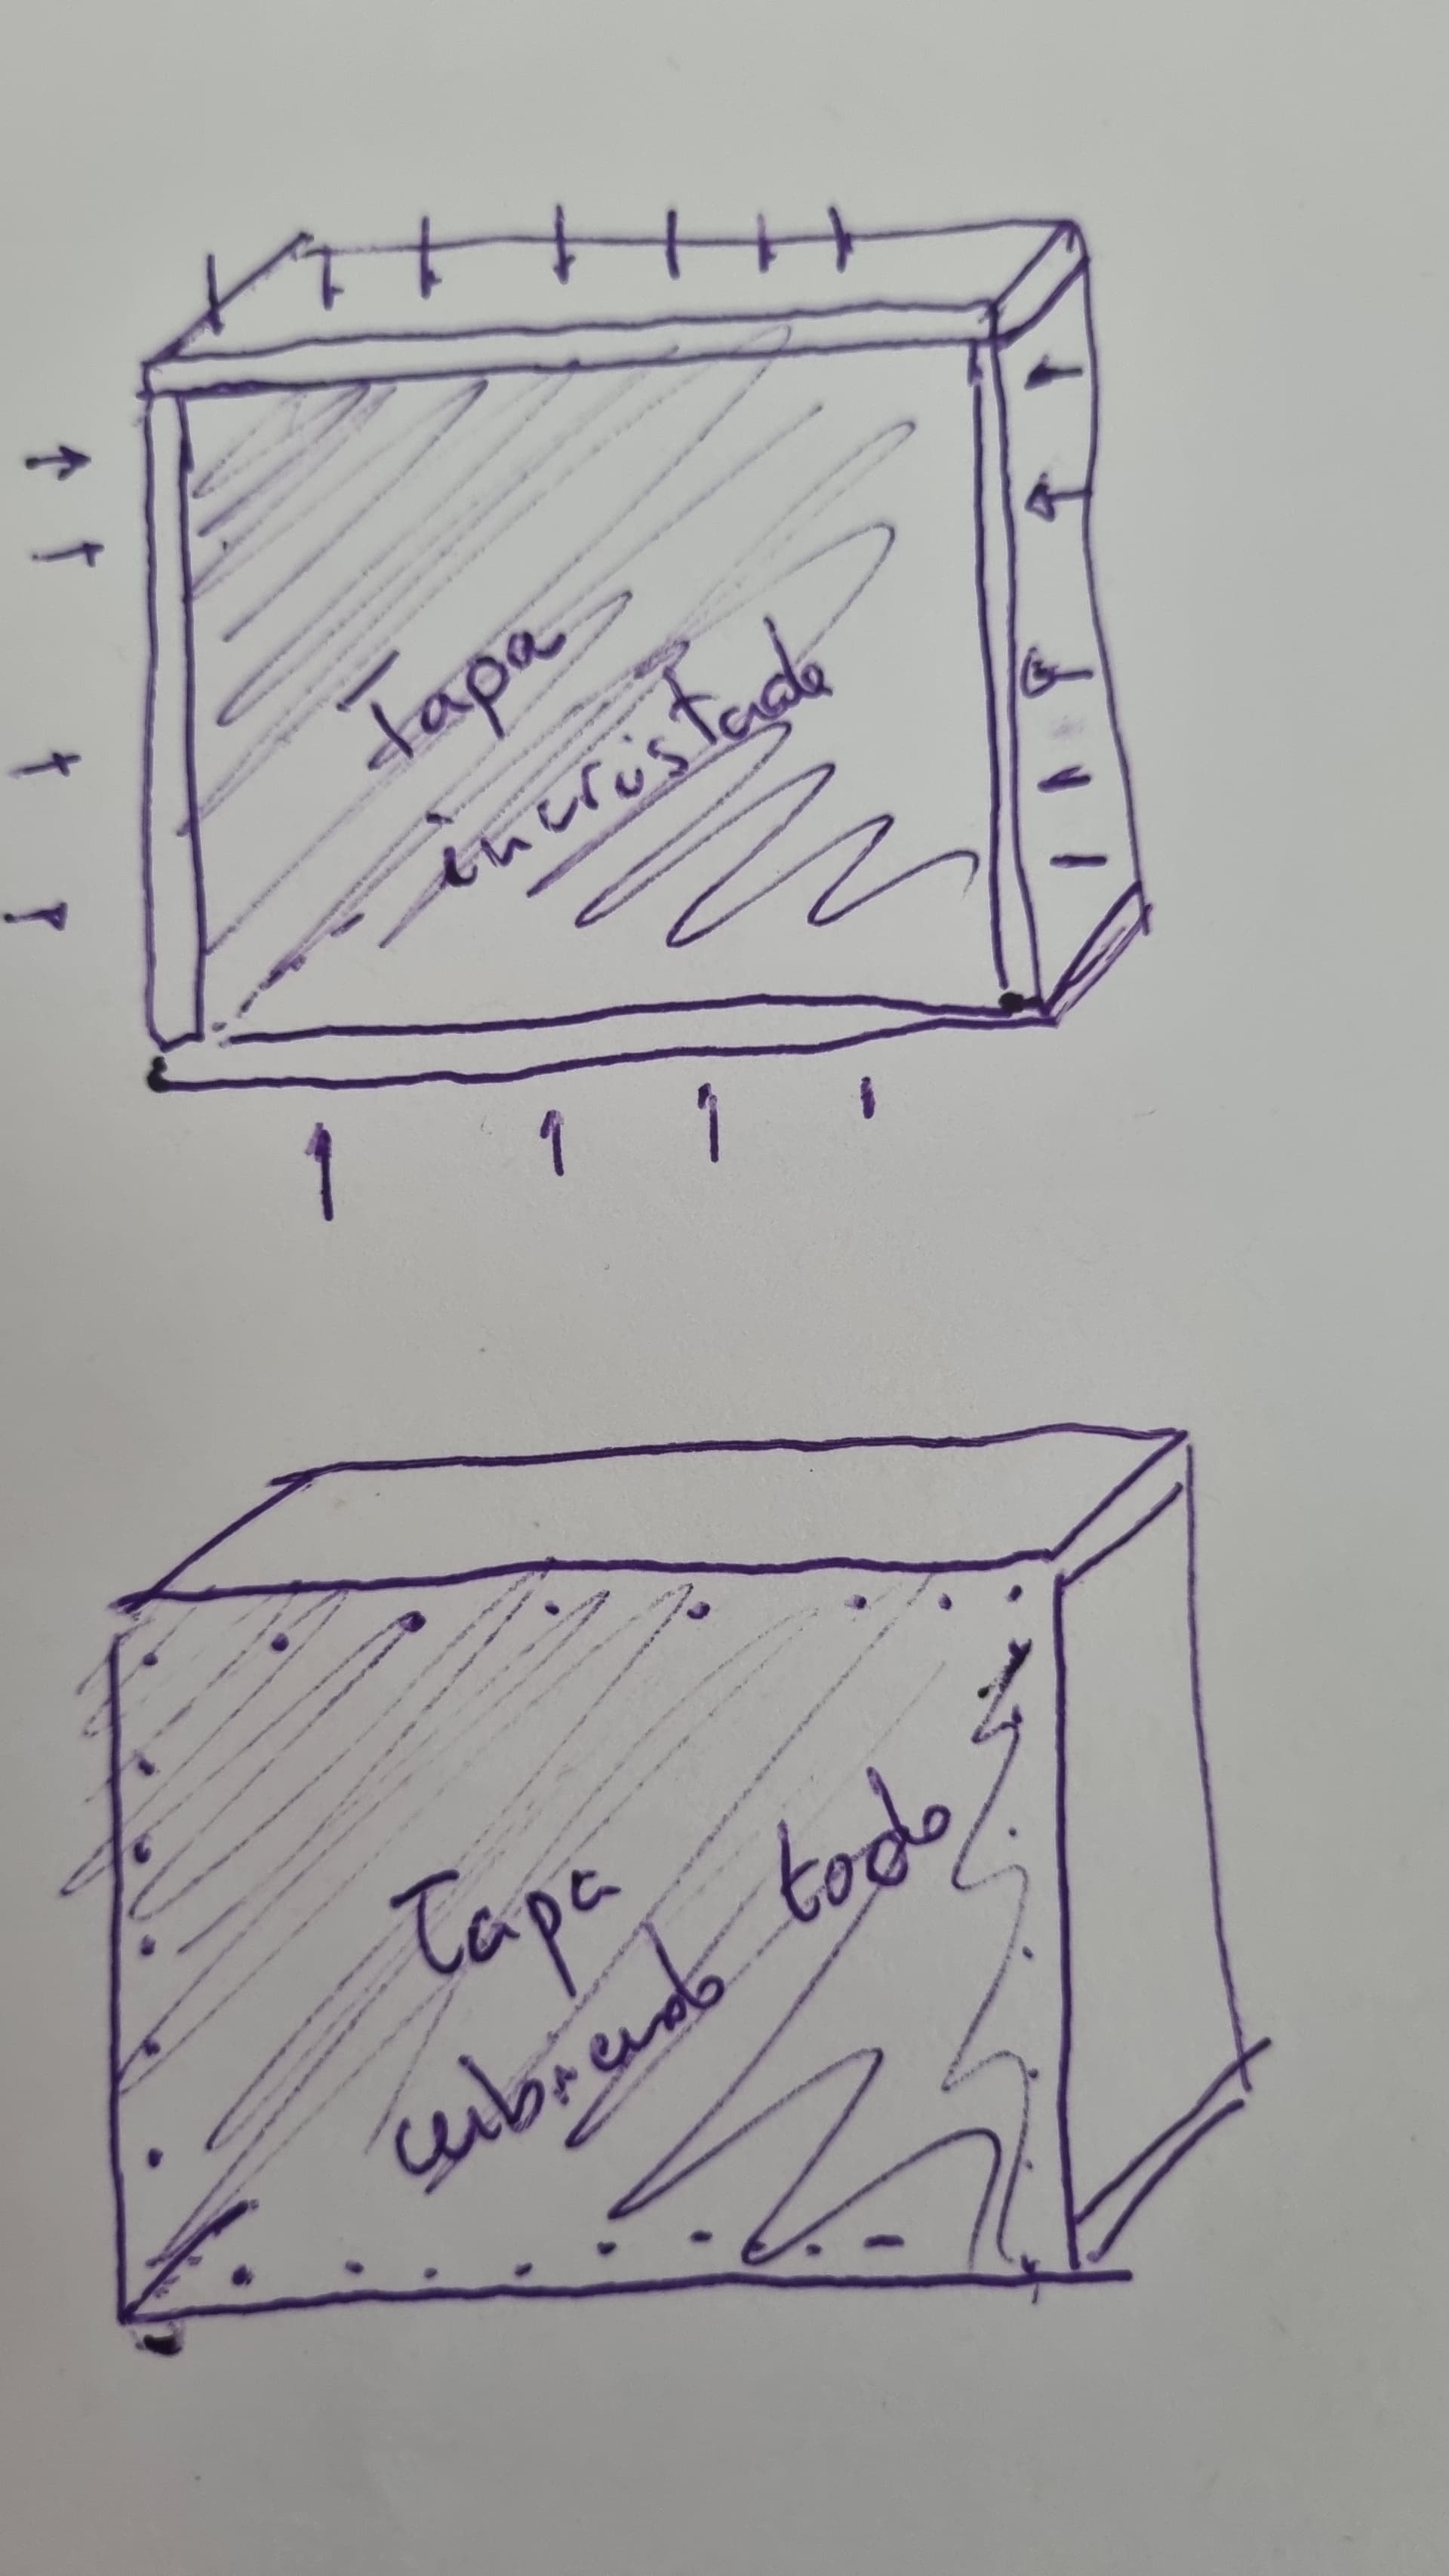 Tapa
incrustada
Tapa
cubriendo todo